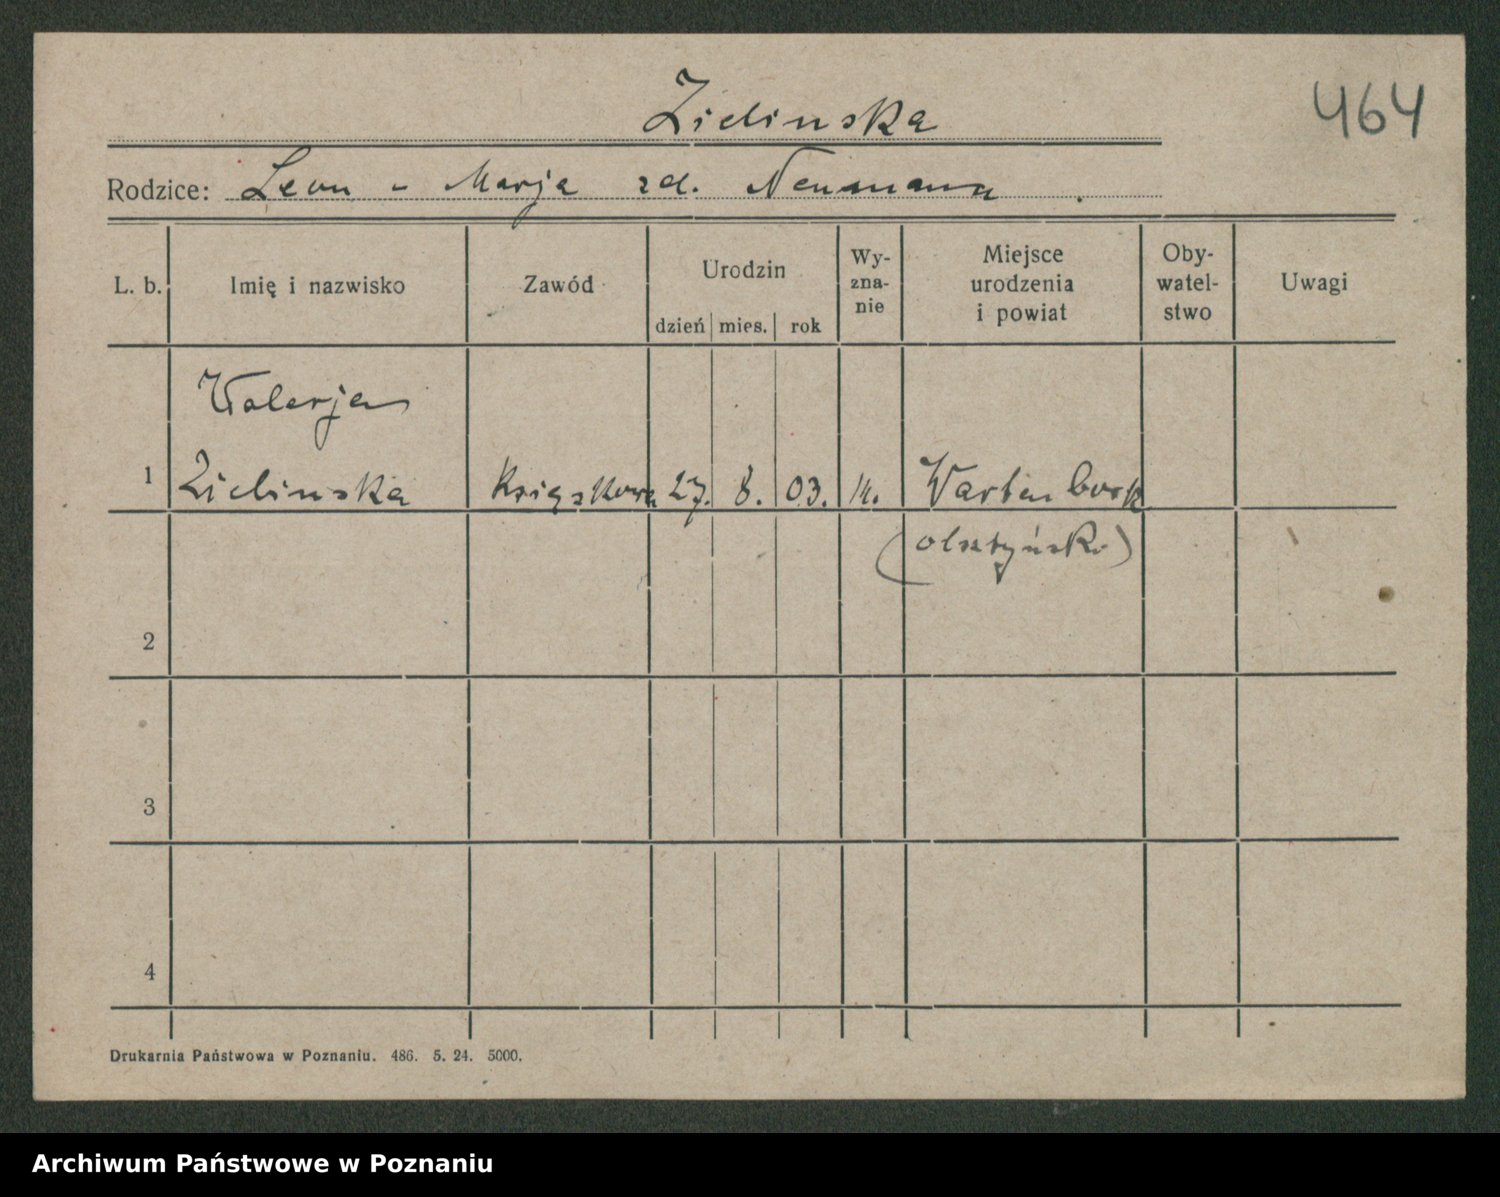 Zielinska
464
Rodzice: Leon - Marja zd. Neumann
L. b. Imię i nazwisko Zawód Urodzin dzień mies. rok Wy-znanie Miejsce urodzenia i powiat Oby-watel-stwo Uwagi
Walerja
1 Zielinska Książkowa 27. 8. 03. Wartenbork
(olsztyńsko)
2
3
4
Drukarnia Państwowa w Poznaniu. 486. 5. 24. 5000.
Archiwum Państwowe w Poznaniu